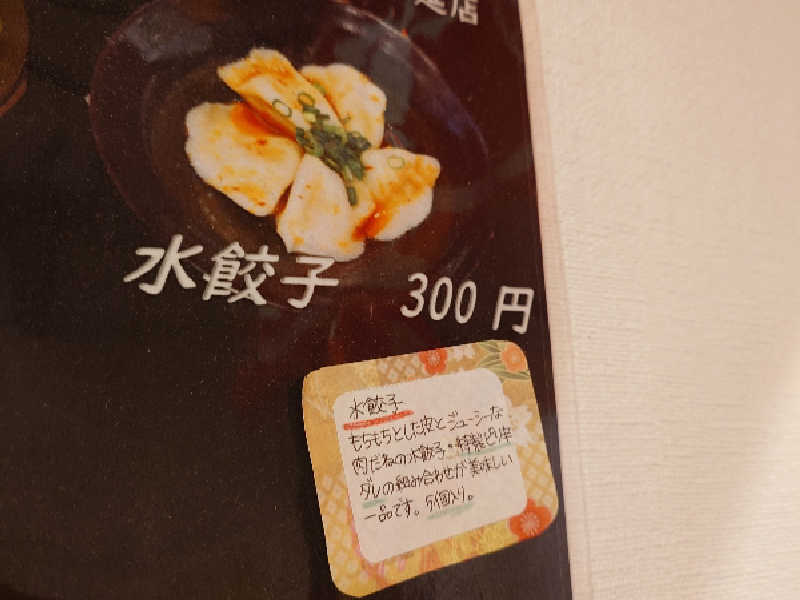 水餃子 300円
水餃子
もちもちとした皮とジューシーな
肉だねの水餃子・特製ピリ辛
ダレの組み合わせが美味しい
一品です。5個入り。